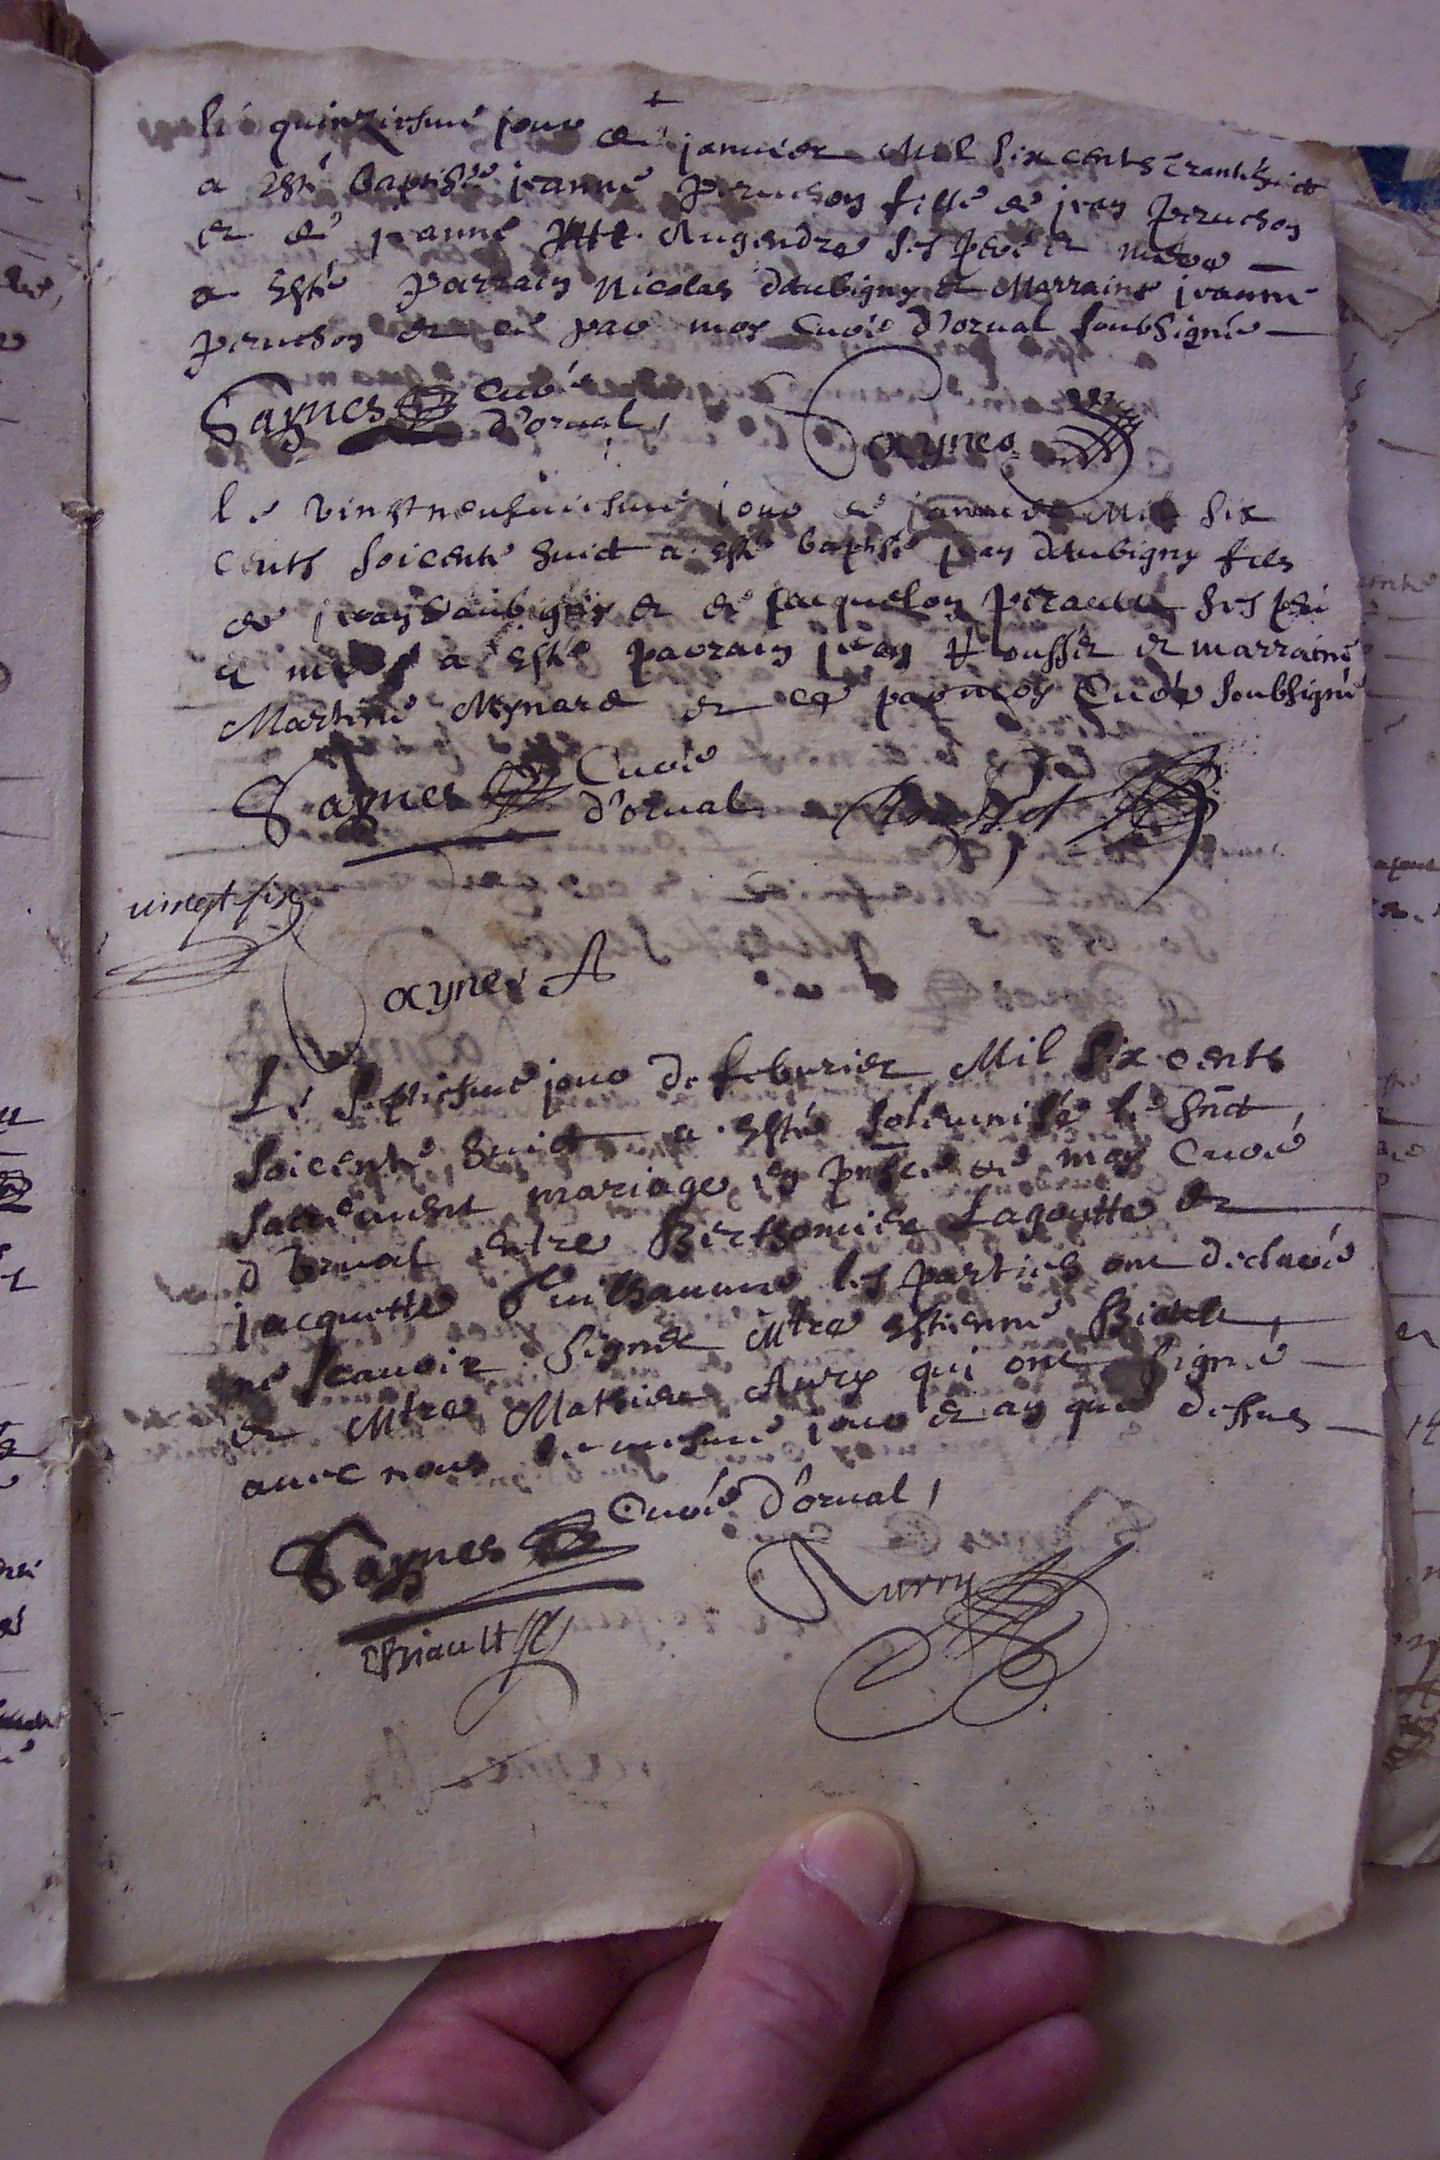 Le quinziesme jour de janvier Mil six cents trante huict
a esté baptisée jeanne Peruchon fille de jean Peruchon
et de jeanne Augendre ses pere et mere
a esté Parrain Nicolas daubigny et Marraine jeanne
Peruchon et ce par moy Curé d'orual soubsigné
Saynes Curé
d'orual
Saynes
Le vingtneufuiesme jour de januier Mil six
cents soicente huict a esté baptisé jean daubigny fils
de jean daubigny et de jacquelon Perault ses pere
et mere a esté parrain jean Rousset et marraine
Martine Meynard et ce par moy Curé soubsigné
Saynes Curé
d'orual
Rousset
vingt six
Saynes
Le septiesme jour de feburier Mil six cents
soicente huict a esté solemnisé le snct
sacrement mariage en pnce de moy Curé
d'orual entre Berthomier Lagoutte et
jacquette Guilhaume les parties ont declaré
ne scauoir signer Mtre Estienne Biault
et Mtre Mathieu Aury qui ont signé
auec nous le mesme jour et an que dessus
Saynes Curé d'orual
Aurry
Biault